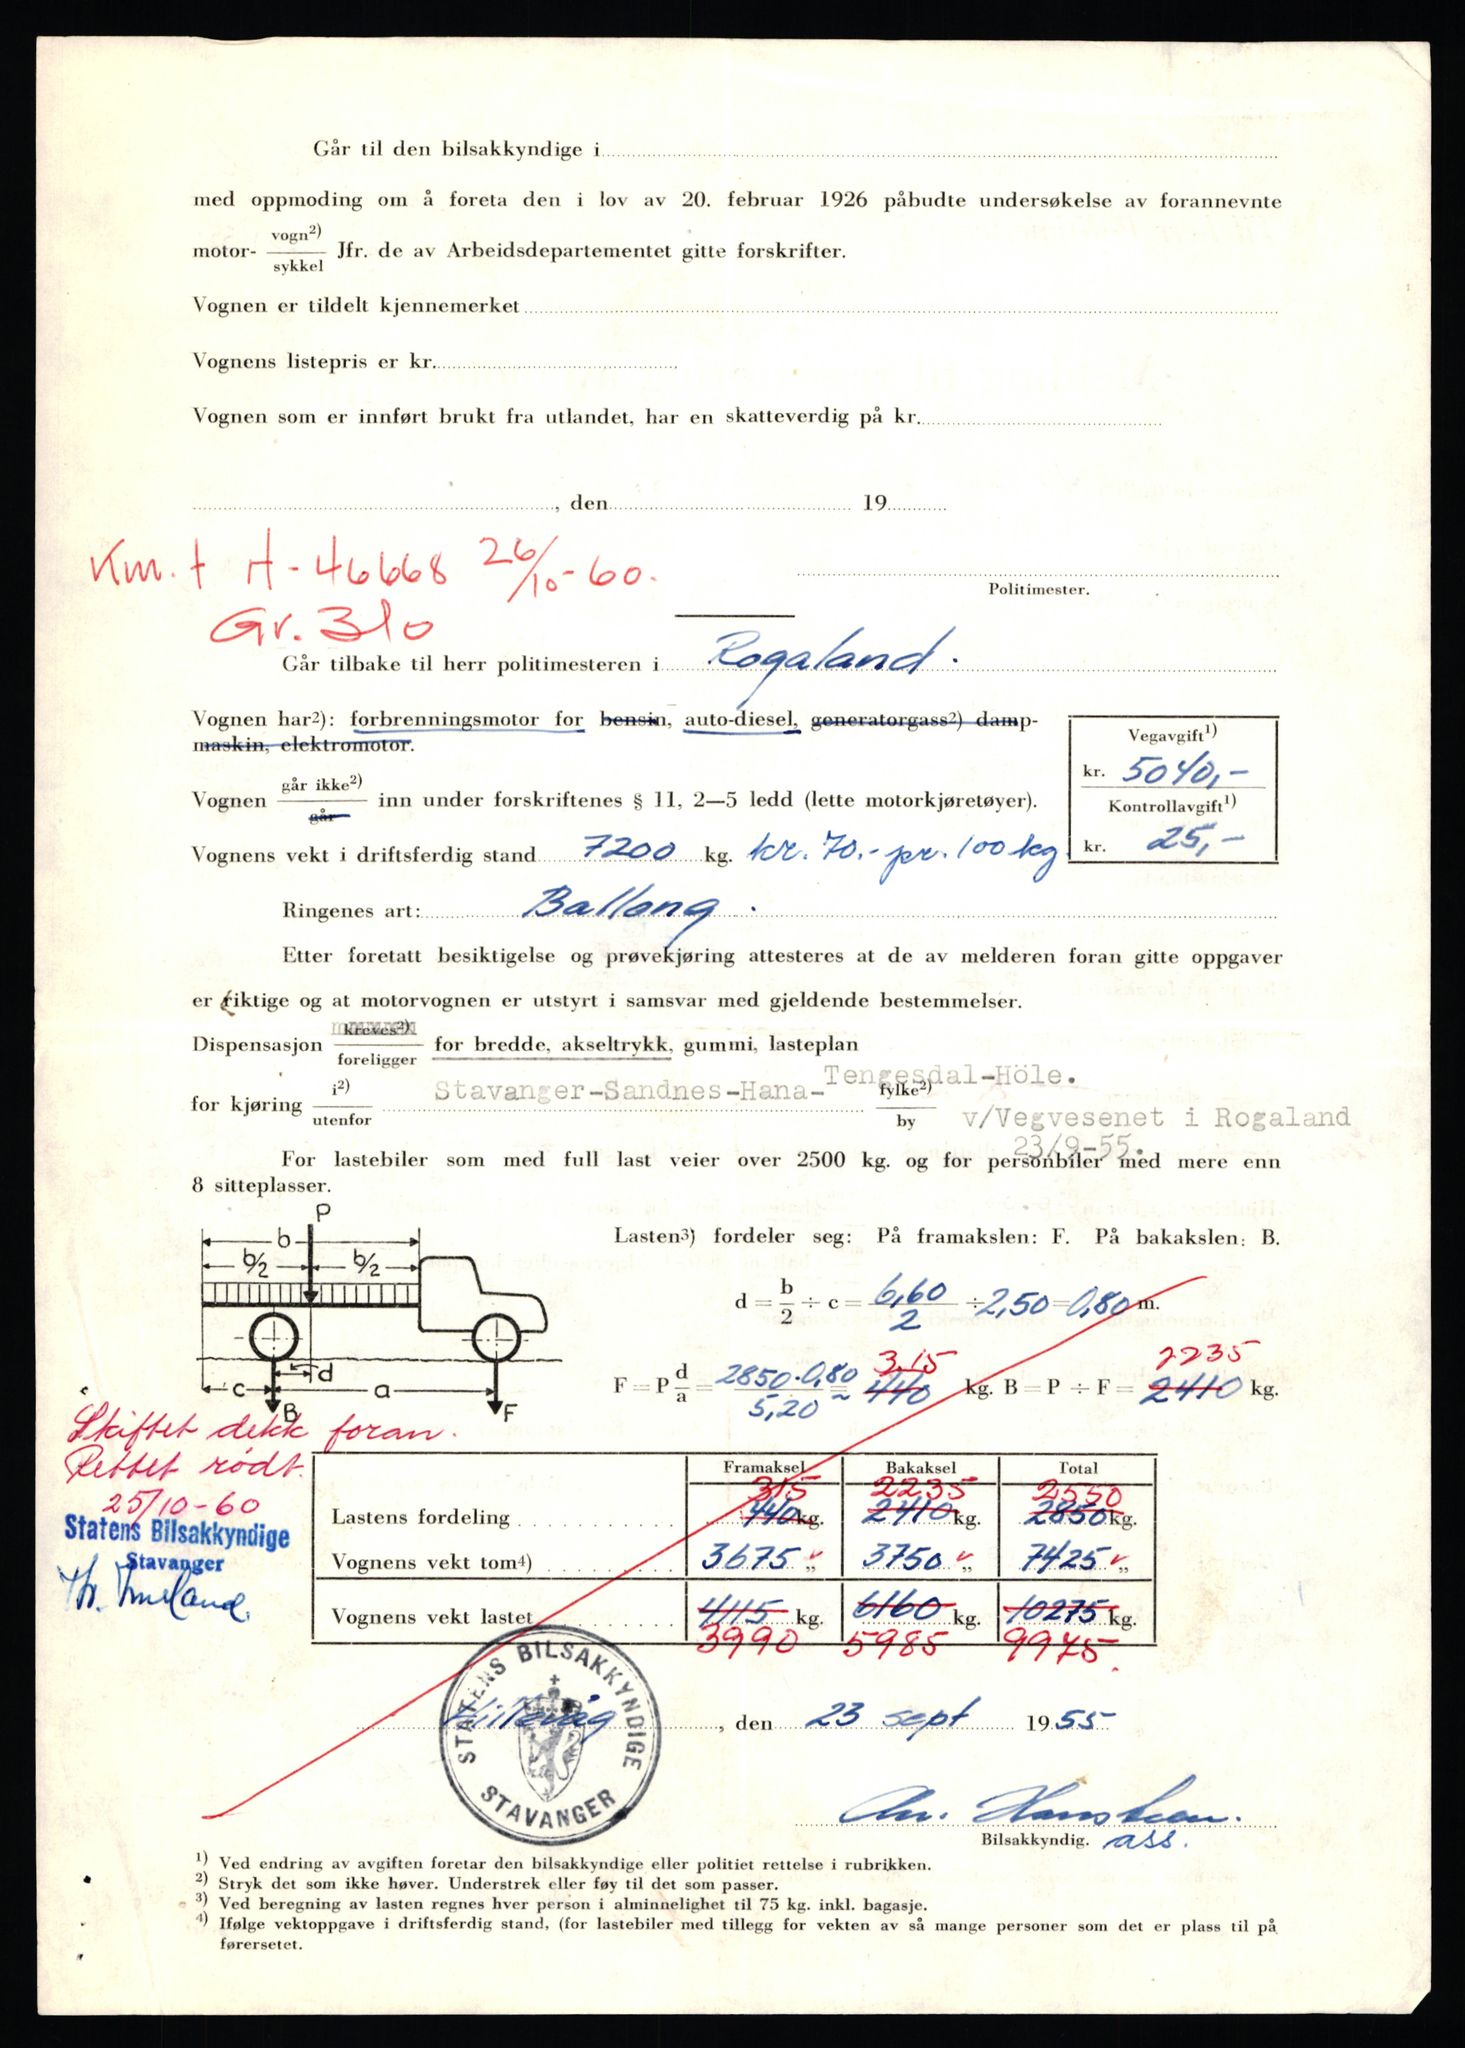 Går til den bilsakkyndige i
med oppmoding om å foreta den i lov av 20. februar 1926 påbudte undersøkelse av forannevnte
motor- vogn2) / sykkel Jfr. de av Arbeidsdepartementet gitte forskrifter.
Vognen er tildelt kjennemerket
Vognens listepris er kr.
Vognen som er innført brukt fra utlandet, har en skatteverdig på kr.
, den 19
Km. t H-46668 26/10-60.
Politimester.
Gr. 310
Går tilbake til herr politimesteren i Rogaland.
Vognen har2): forbrenningsmotor for bensin, auto-diesel, generatorgass2) damp-
maskin, elektromotor.
Vegavgift1)
kr. 5040,-
Vognen går ikke2) / går inn under forskriftenes § 11, 2—5 ledd (lette motorkjøretøyer).
Kontrollavgift1)
kr. 25,-
Vognens vekt i driftsferdig stand 7200 kg. kr. 70.- pr. 100 kg
Ringenes art: Ballong.
Etter foretatt besiktigelse og prøvekjøring attesteres at de av melderen foran gitte oppgaver
er riktige og at motorvognen er utstyrt i samsvar med gjeldende bestemmelser.
Dispensasjon kreves2) / foreligger for bredde, akseltrykk, gummi, lasteplan
for kjøring i2) / utenfor Stavanger-Sandnes-Hana-Tengesdal-Höle. fylke2) / by
v/Vegvesenet i Rogaland
23/9-55.
For lastebiler som med full last veier over 2500 kg. og for personbiler med mere enn
8 sitteplasser.
P
b
b/2 b/2
d
c a
B F
Lasten3) fordeler seg: På framakslen: F. På bakakslen: B.
d = b/2 ÷ c = 6,60/2 ÷ 2,50 = 0,80 m.
315 2235
F = P d/a = 2850·0,80/5,20 = ~ 440 kg. B = P ÷ F = 2410 kg.
Skiftet dekk foran.
Rettet rödt.
25/10-60
Statens Bilsakkyndige
Stavanger
Framaksel Bakaksel Total
315 2235 2550
Lastens fordeling 440 kg. 2410 kg. 2850 kg.
Vognens vekt tom4) 3675 „ 3750 „ 7425 „
Vognens vekt lastet 4115 kg. 6160 kg. 10275 kg.
3990 5985 9975.
STATENS BILSAKKYNDIGE
STAVANGER
Hillevåg, den 23 sept 1955
Chr. Hansteen.
Bilsakkyndig. ass.
1) Ved endring av avgiften foretar den bilsakkyndige eller politiet rettelse i rubrikken.
2) Stryk det som ikke høver. Understrek eller føy til det som passer.
3) Ved beregning av lasten regnes hver person i alminnelighet til 75 kg. inkl. bagasje.
4) Ifølge vektoppgave i driftsferdig stand, (for lastebiler med tillegg for vekten av så mange personer som det er plass til på
førersetet.